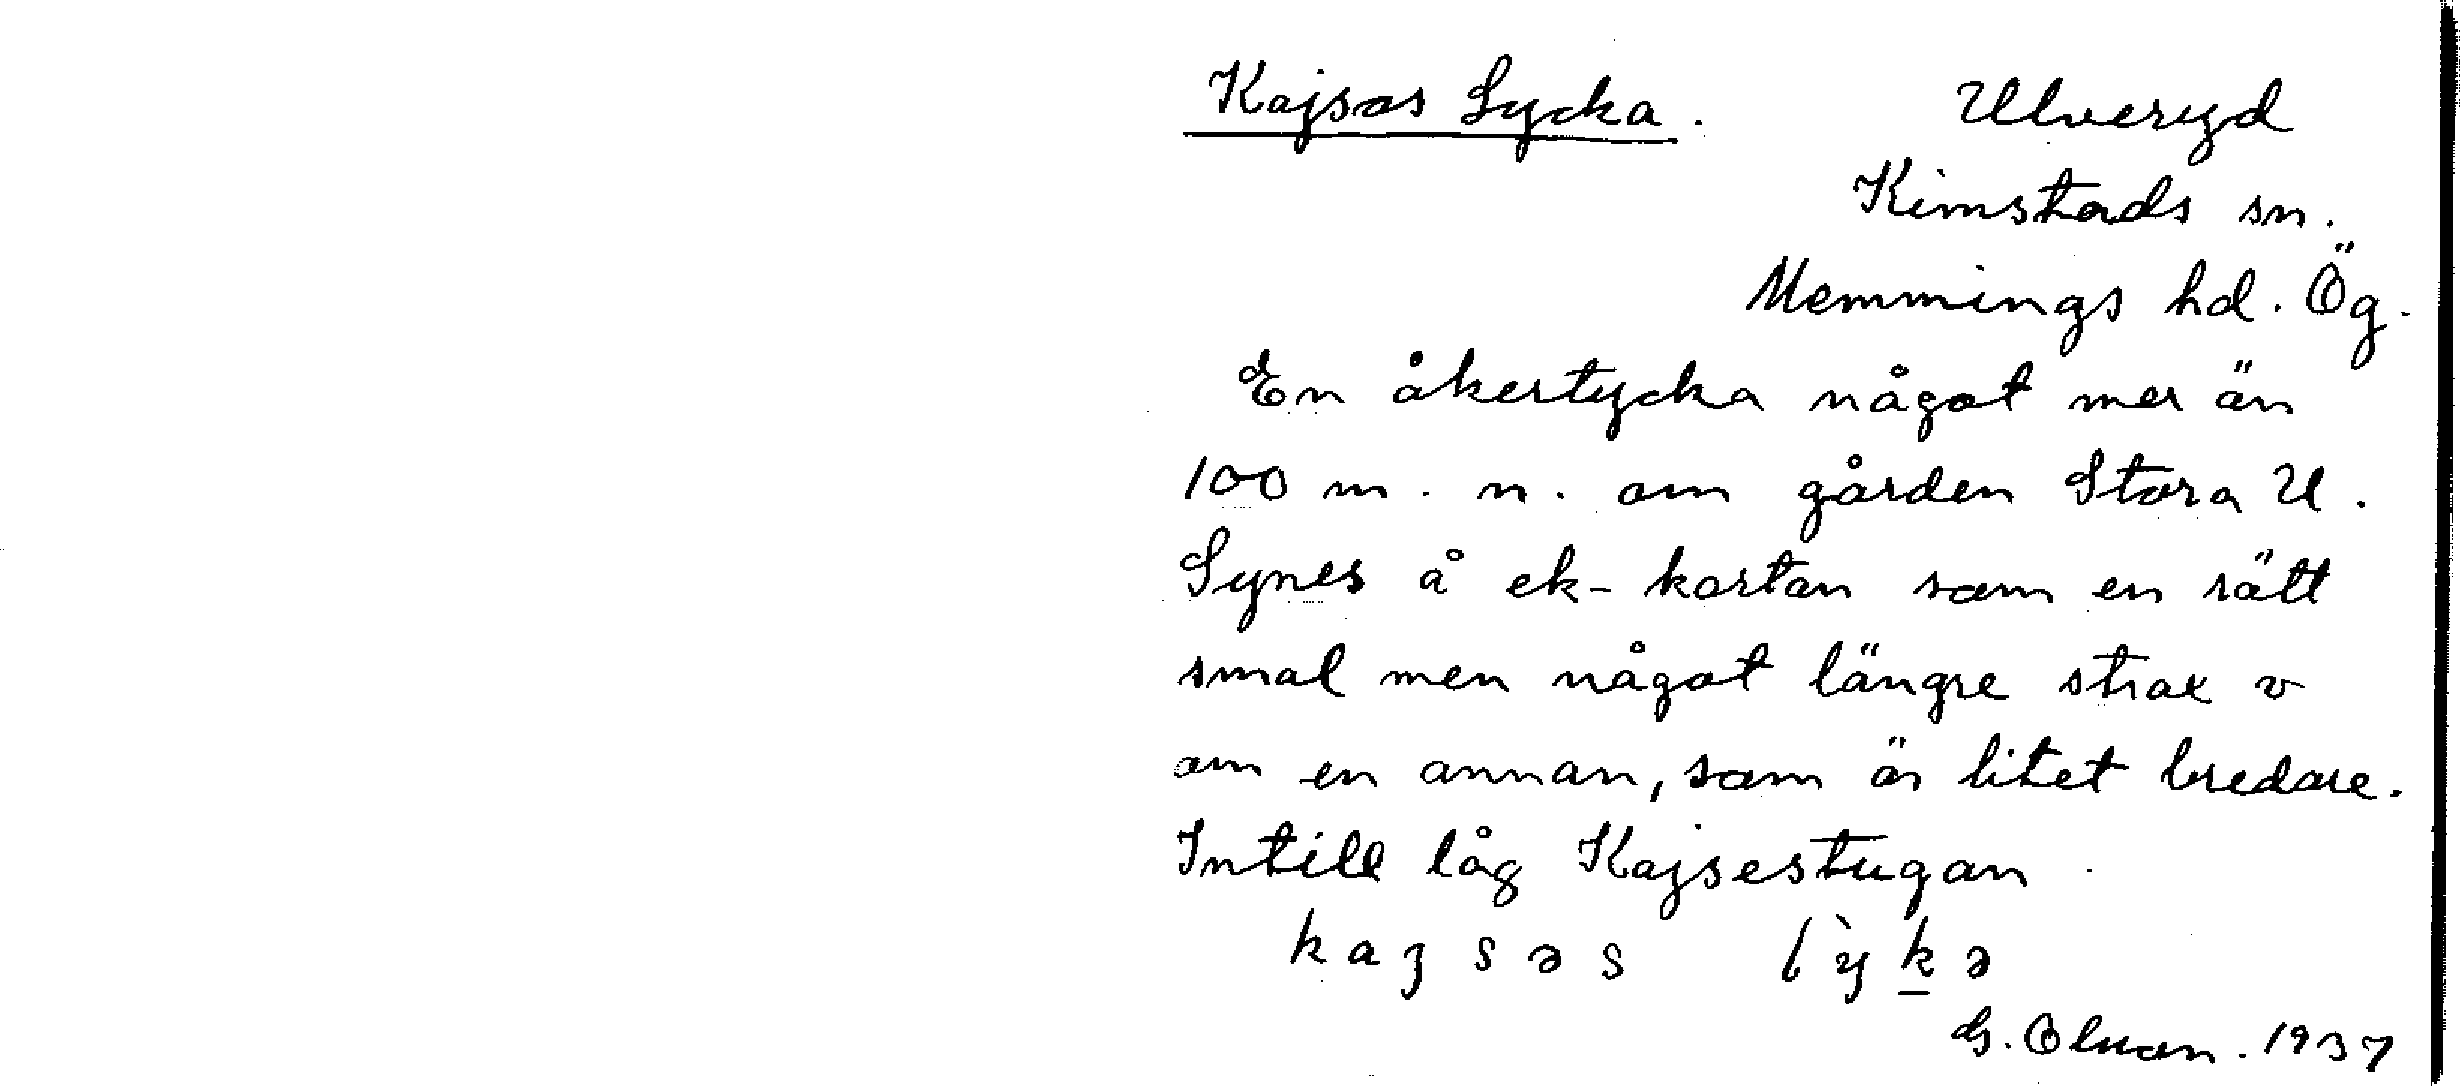 Kajsas Lycka. Ulveryd
Kimstads sn.
Memmings hd. Ög.
En åkertycka något mer än
100 m. n. om gården Stora U.
Synes å ek-kartan som en rätt
smal men något längre strax v
om en annan, som är litet bredare.
Intill låg Kajsestugan.
kajsəs lỳkə
G. 1937